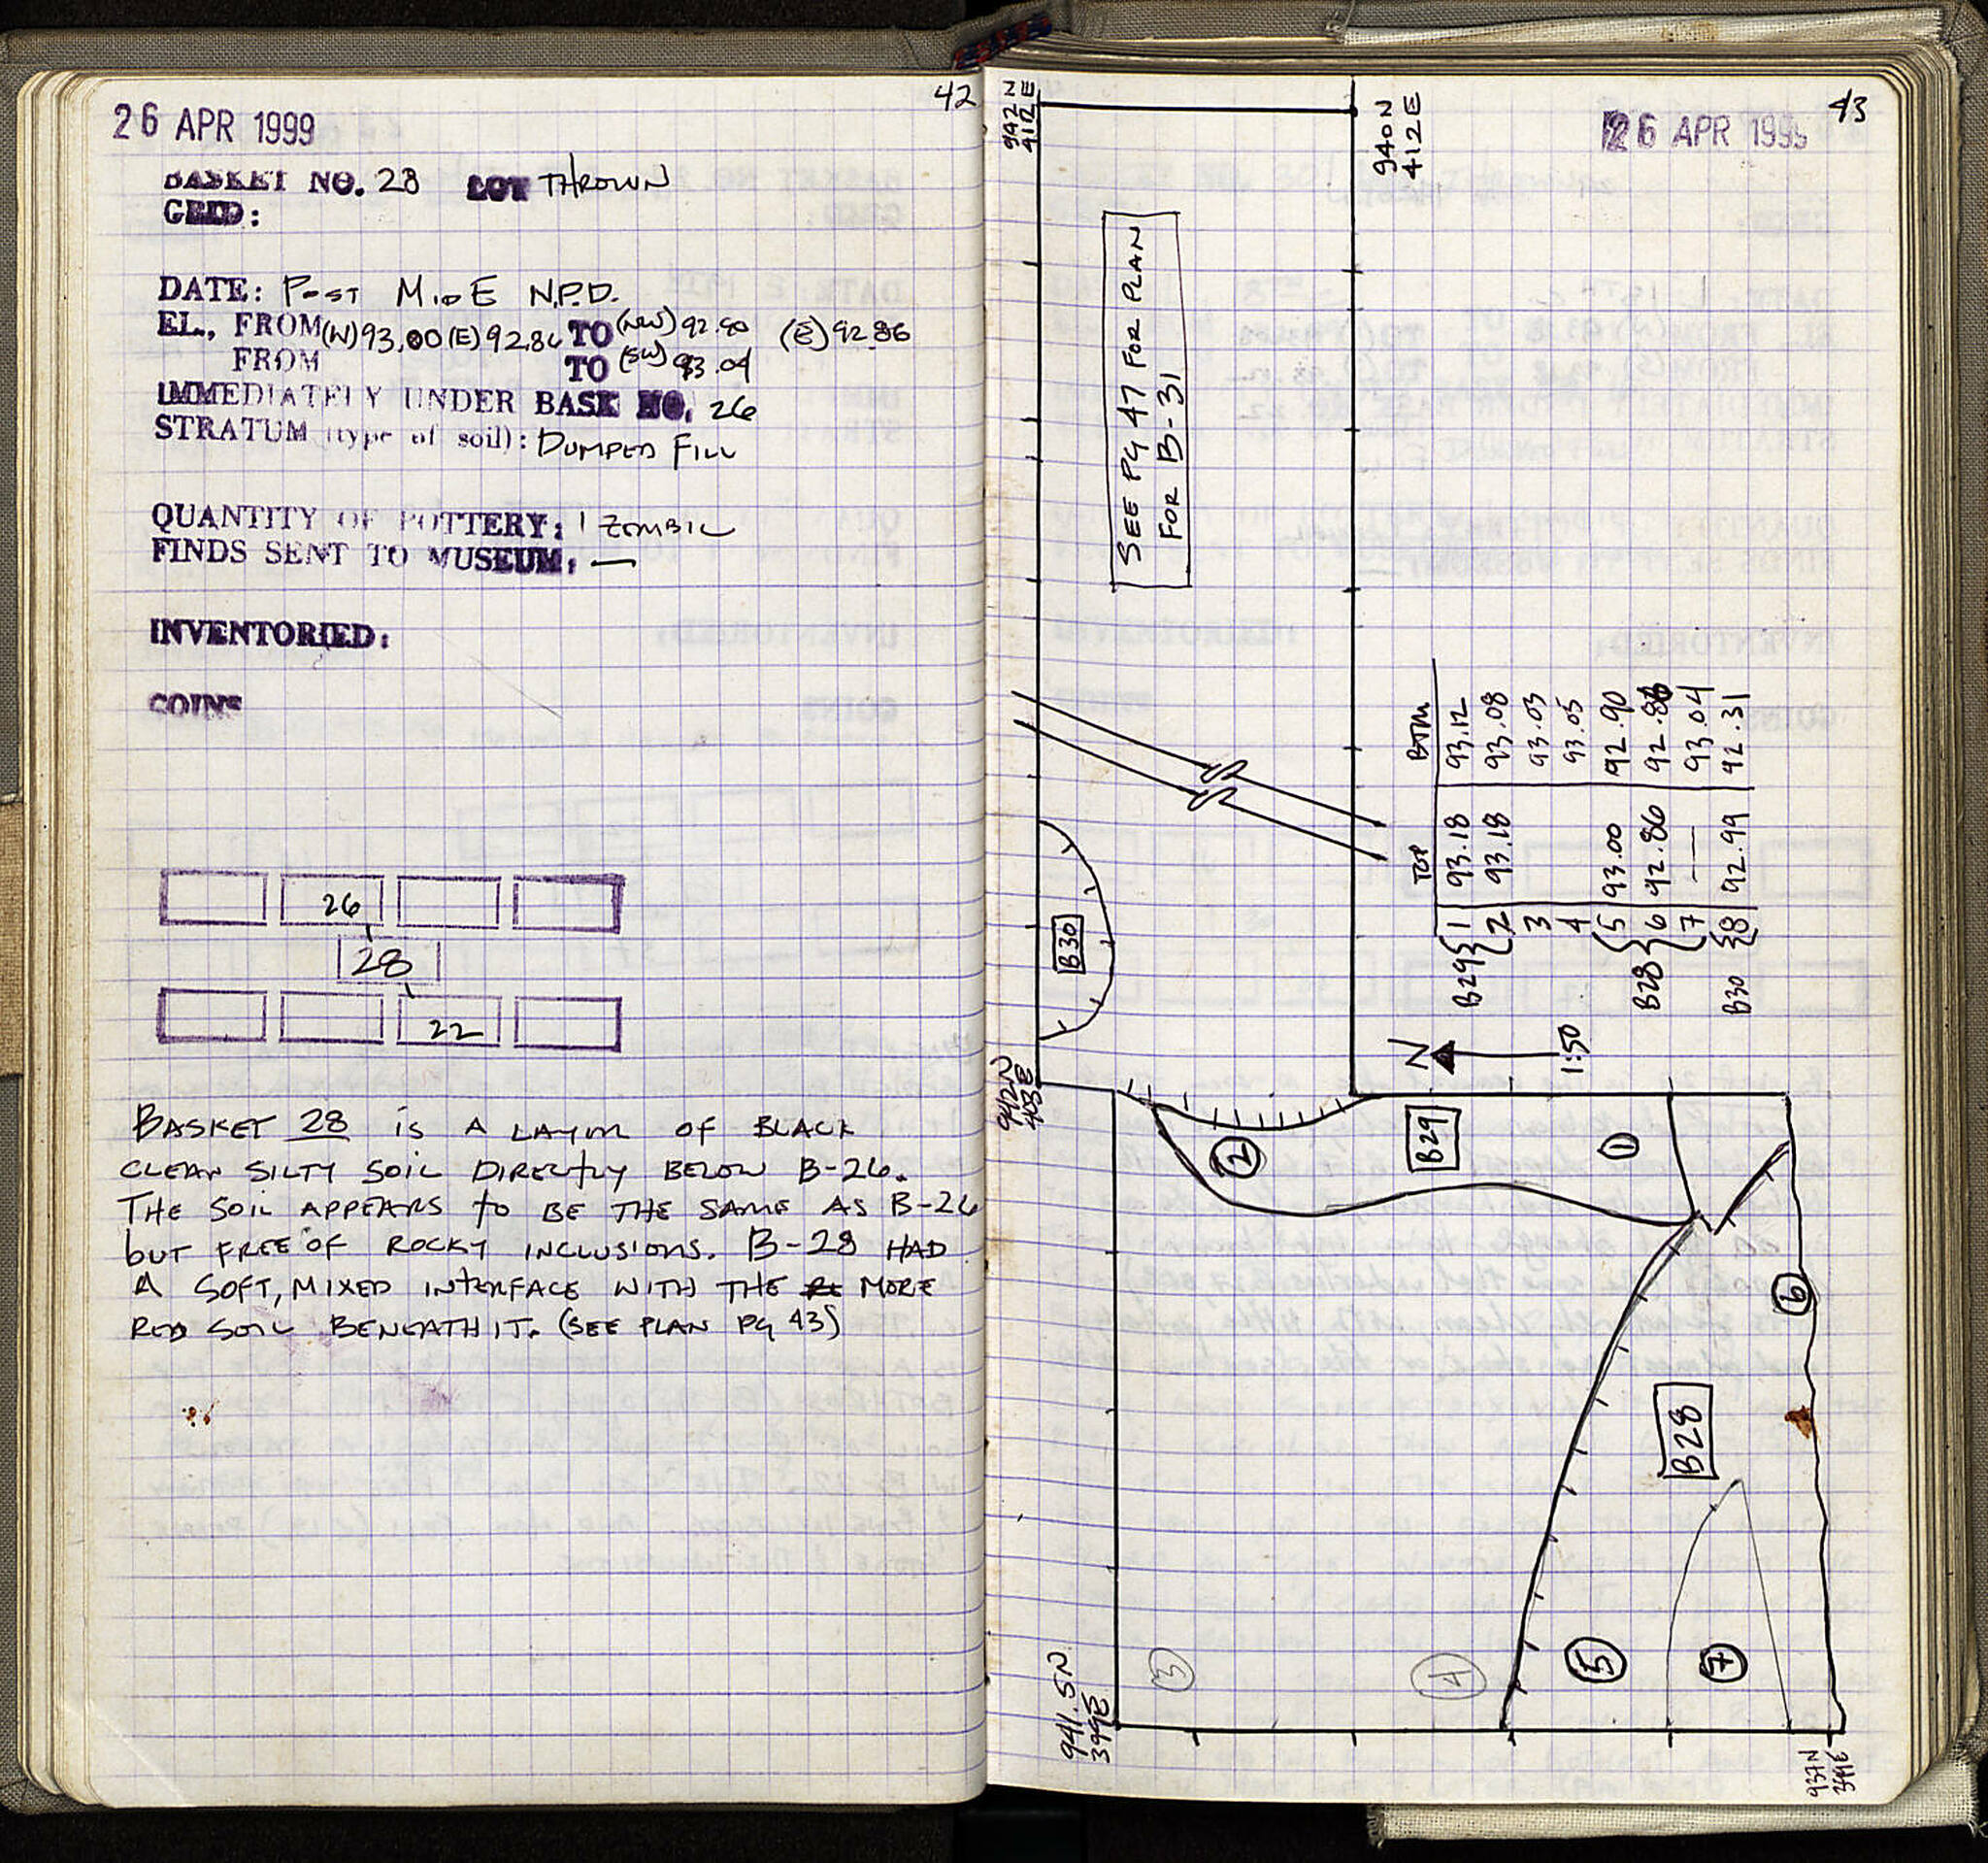 42
26 APR 1999
BASKET NO. 28 LOT THROWN
GRID:
DATE: POST MID E N.P.D.
EL., FROM (W) 93.00 (E) 92.86 TO (NW) 92.90 (E) 92.86
FROM TO (SW) 93.04
IMMEDIATELY UNDER BASK NO. 26
STRATUM (type of soil): DUMPED FILL
QUANTITY OF POTTERY: 1 ZEMBIL
FINDS SENT TO MUSEUM: —
INVENTORIED:
COINS
26
28
22
BASKET 28 IS A LAYER OF BLACK
CLEAN SILTY SOIL DIRECTLY BELOW B-26.
THE SOIL APPEARS TO BE THE SAME AS B-26
BUT FREE OF ROCKY INCLUSIONS. B-28 HAD
A SOFT, MIXED INTERFACE WITH THE MORE
RED SOIL BENEATH IT. (SEE PLAN PG 43)
43
26 APR 1999
942N
412E
940N
412E
SEE PG 47 FOR PLAN
FOR B-31
TOP BTM
B29 { 1 93.18 93.12
2 93.18 93.08
3 93.03
4 93.05
B28 { 5 93.00 92.90
6 92.86 92.86
7 —— 93.04
B30 { 8 92.99 92.31
B30
N
1:50
942N
403E
2
B29
1
6
B28
3
4
5
7
941.5N
399E
937N
399E